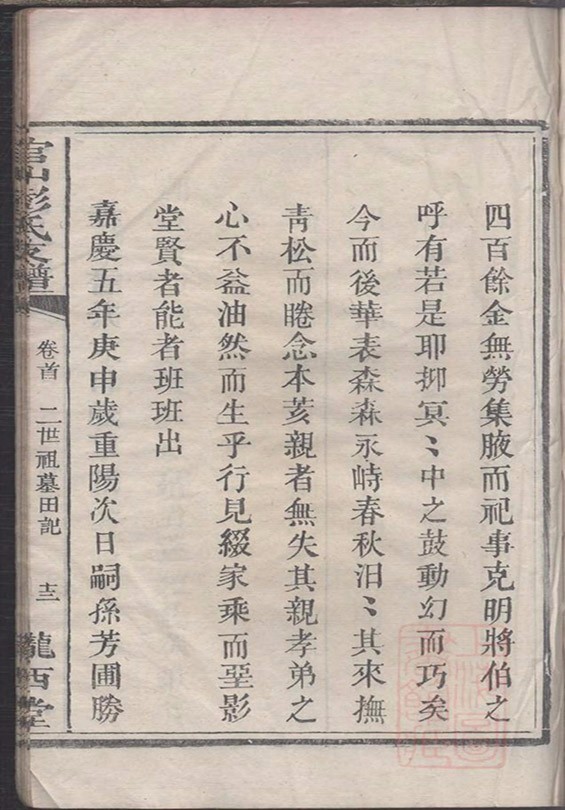 四百餘金無勞集腋而祀事克明將伯之
呼有若是耶抑冥〻中之鼓動幻而巧矣
今而後華表森森永峙春秋汨〻其來撫
青松而睠念本荄親者無失其親孝弟之
心不益油然而生乎行見綴家乘而堊影
堂賢者能者班班出
嘉慶五年庚申歲重陽次日嗣孫芳圃勝
官山彭氏支譜
卷首 二世祖墓田記 十三
隴西堂